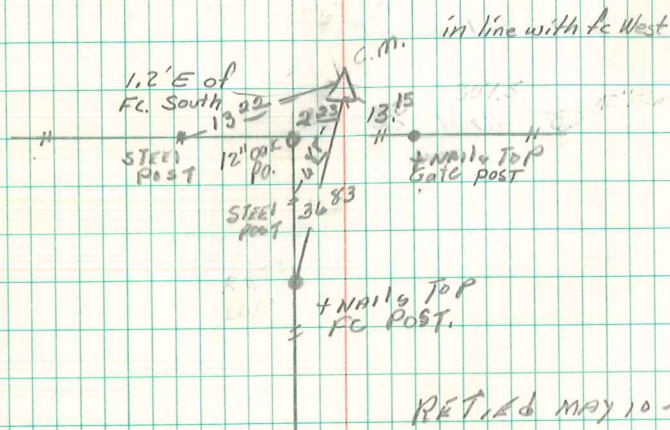 in line with fc West
C.M.
1.2' E of
Fc. South
13 22
2 23
13. 15
STEEl
POST
12" oak
Po.
+ NAILs TOP
Gate post
STEEl
POST
36 83
+ NAILs TOP
FC POST.
RETIEd MAY 10-